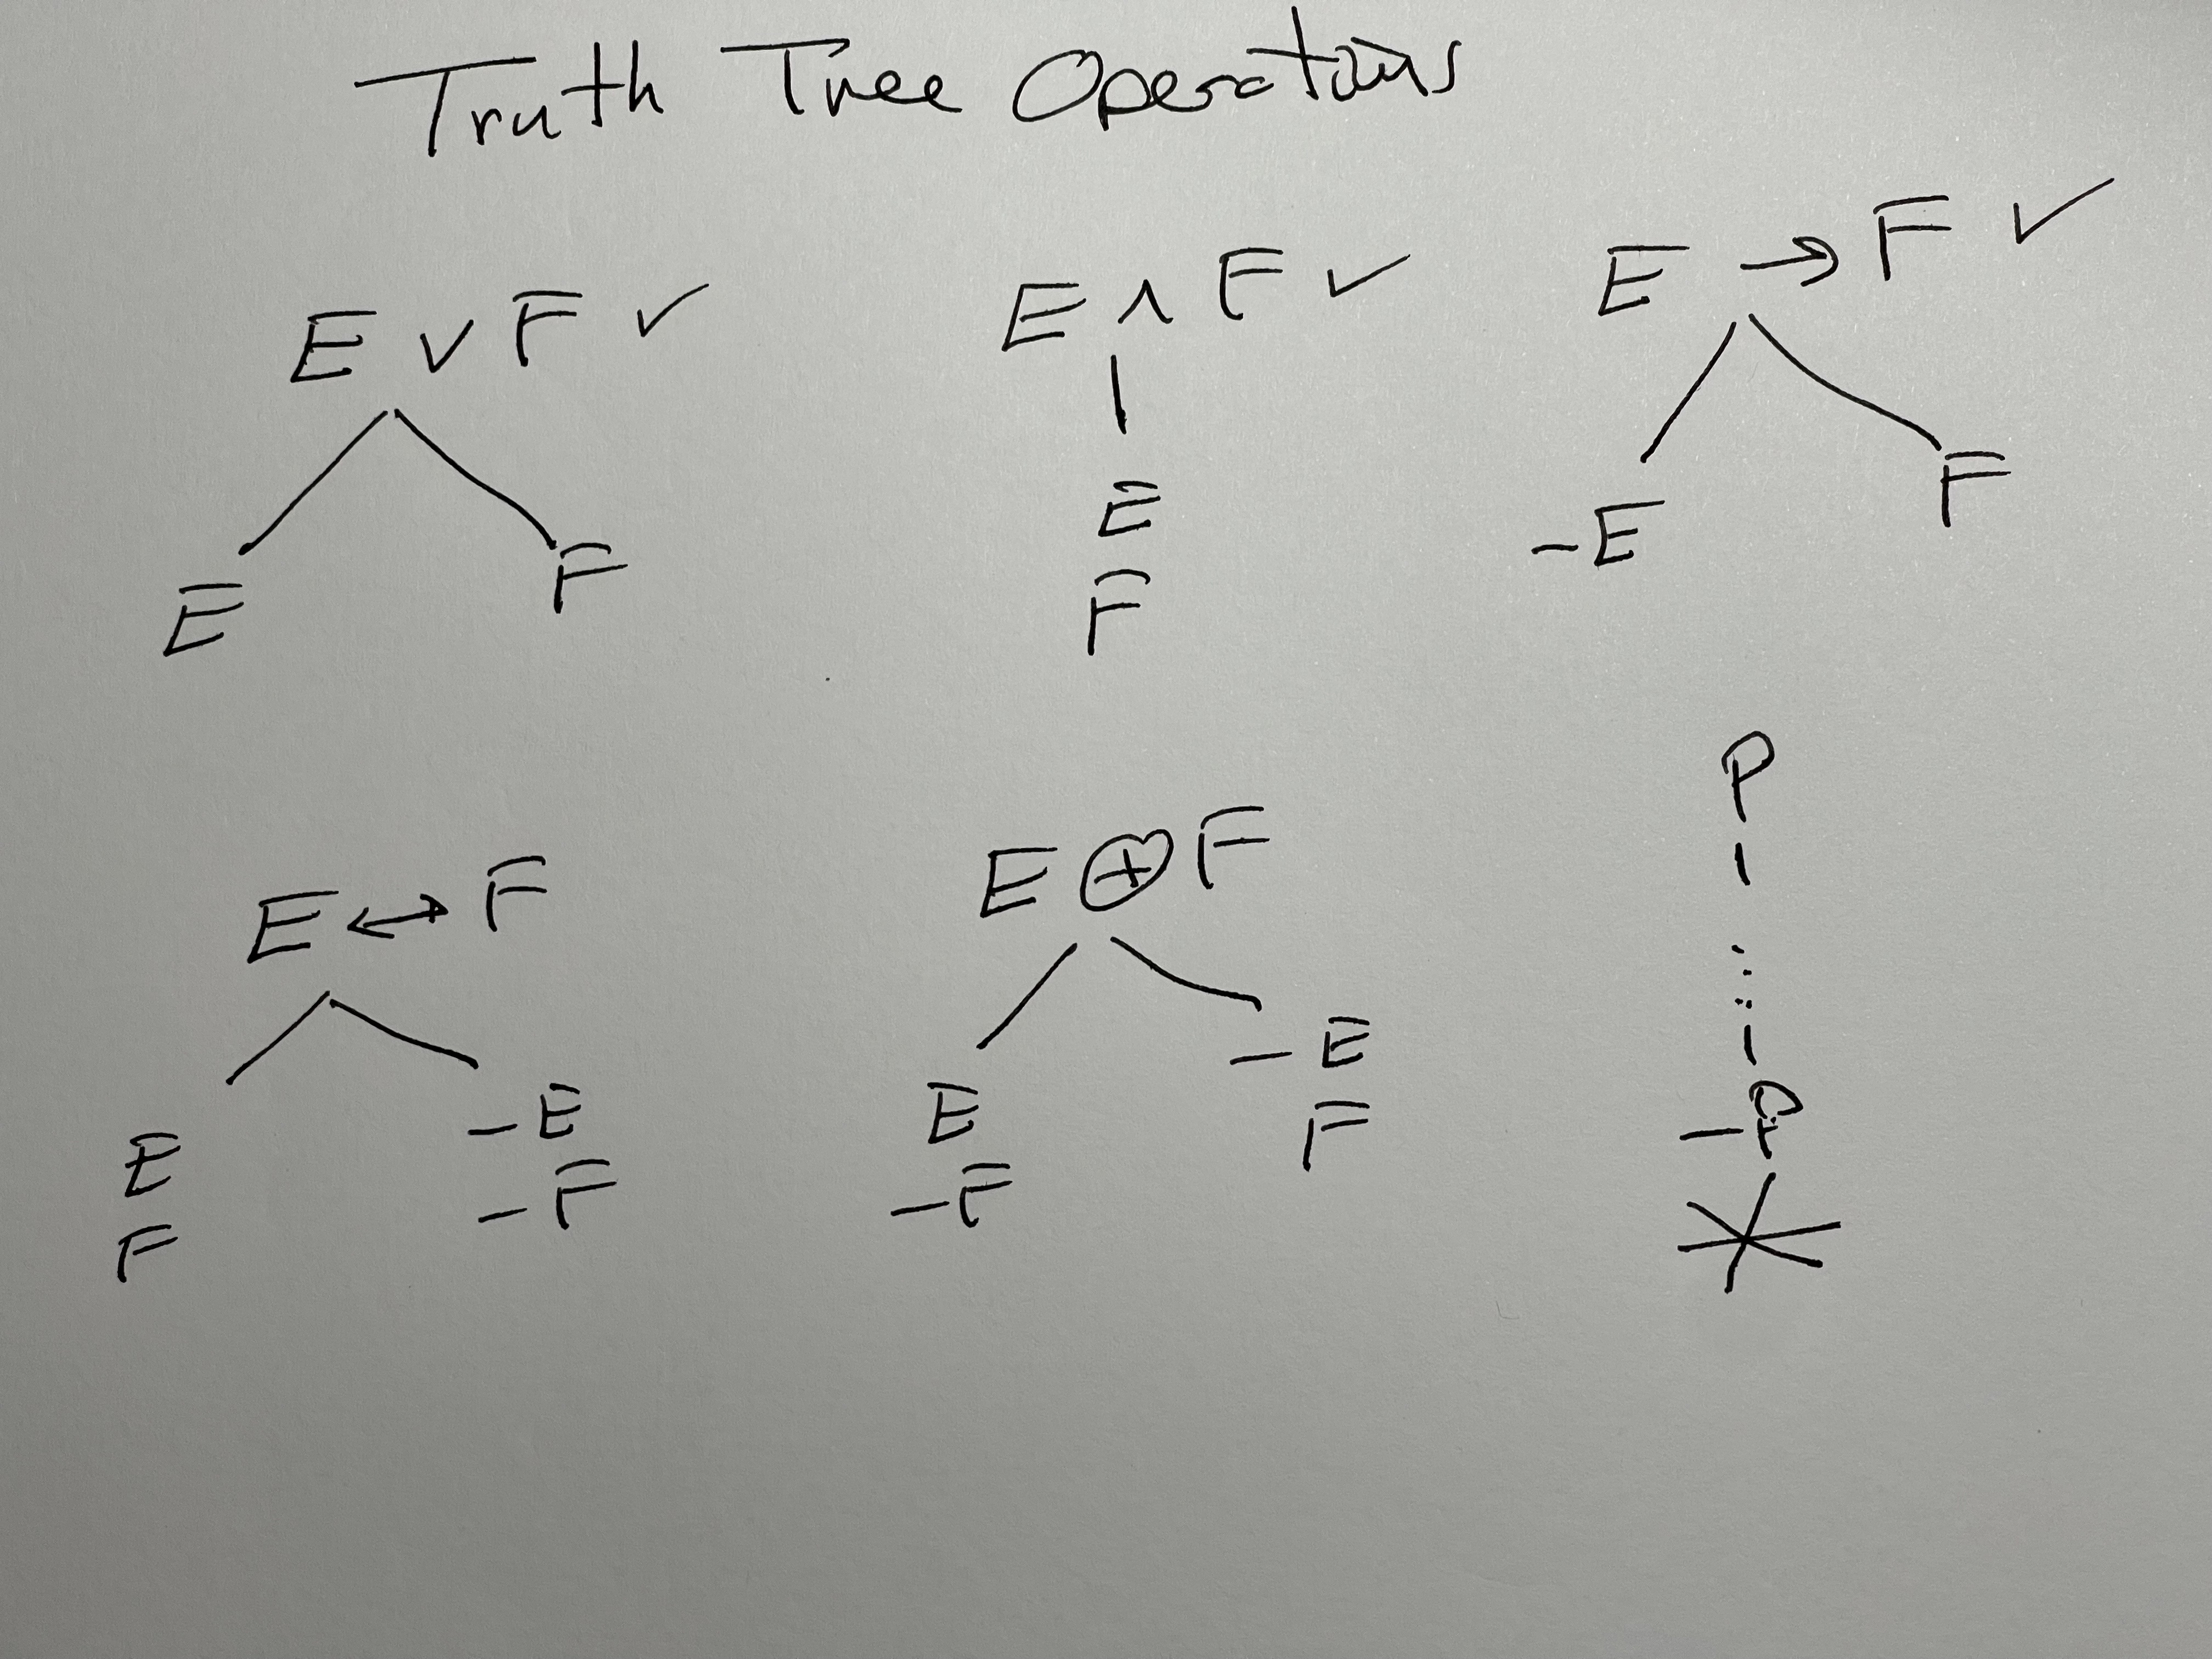 Truth Tree Operations
E ∨ F ✓
E F
E ∧ F ✓
E
F
E → F ✓
-E F
E ↔ F
E -E
F -F
E ⊕ F
E -E
-F F
P
-P